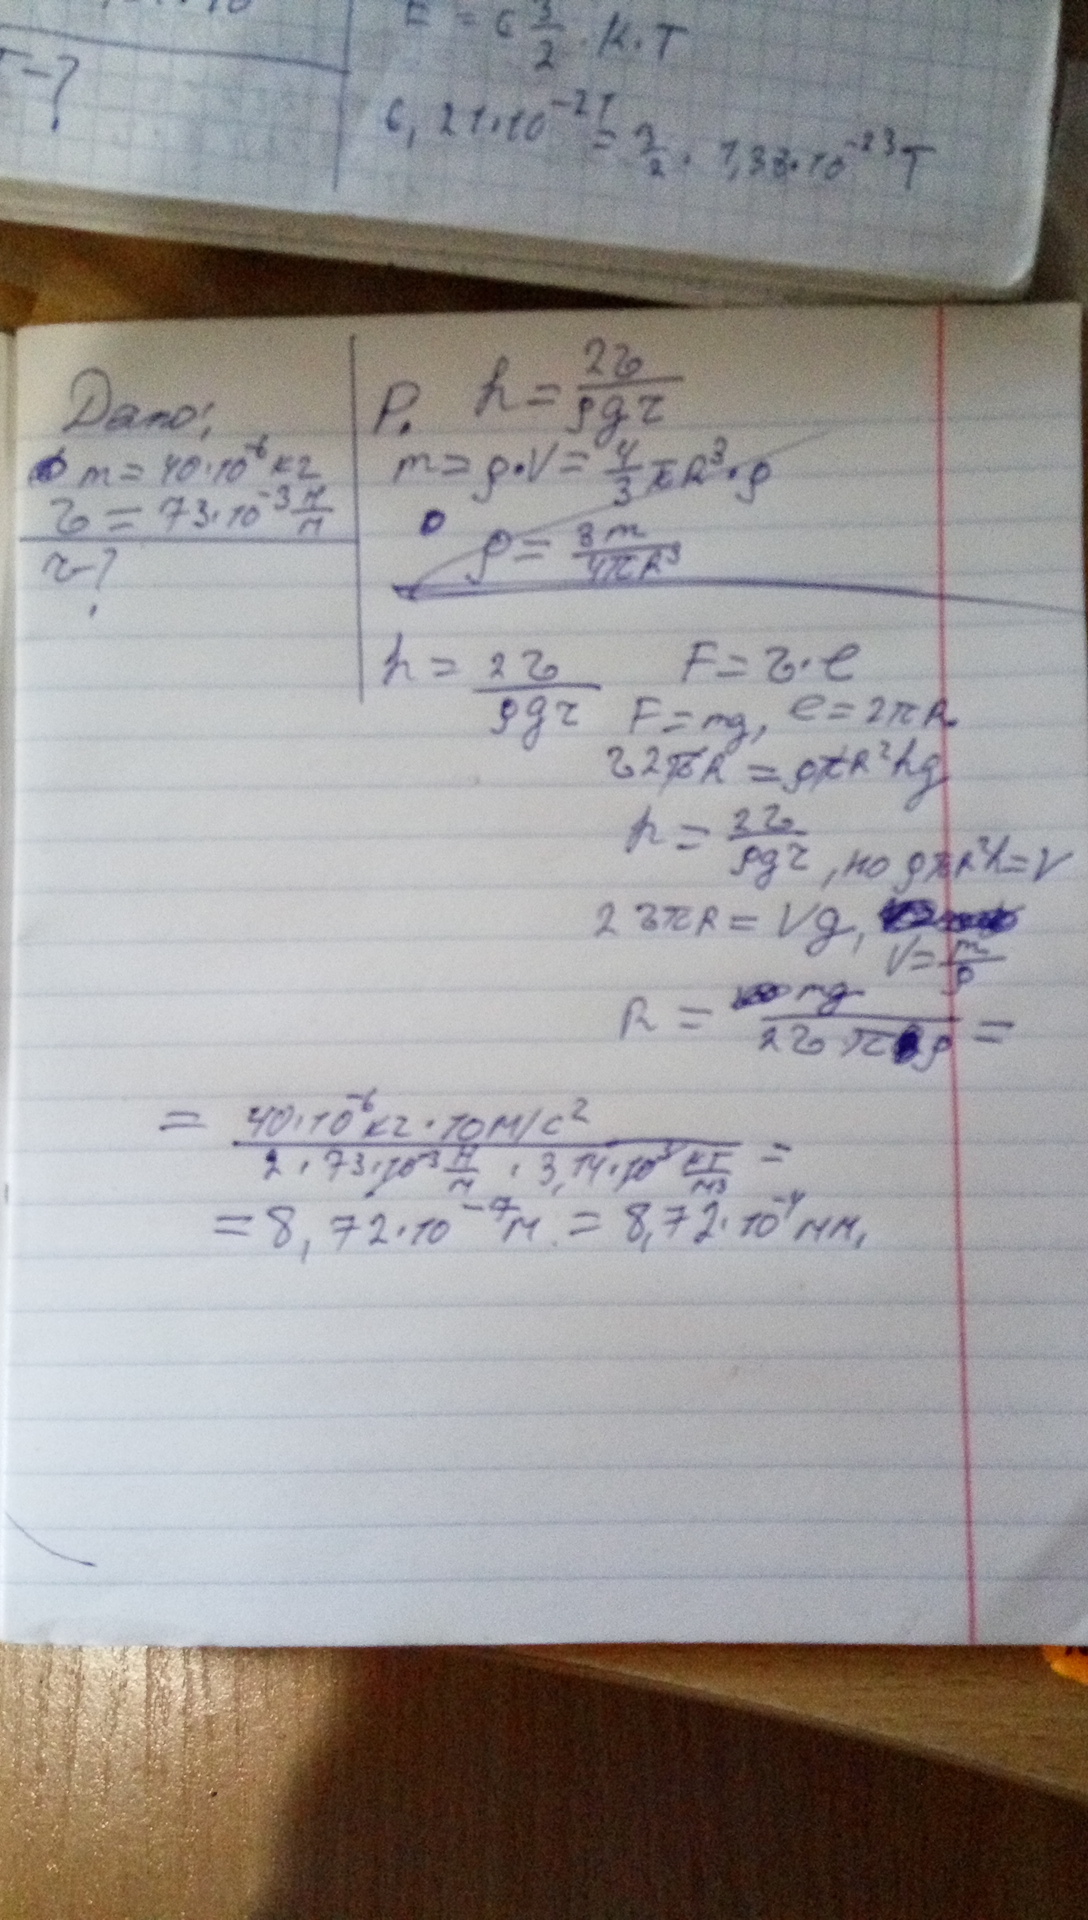 T-?
E = 6 3/2 · K · T
6,21·10⁻²¹ = 3/2 · 1,38·10⁻²³T
Дано:
m = 40·10⁻⁶ кг
σ = 73·10⁻³ Н/м
r-?
Р. h = 2σ/ρgr
m = ρ·V = 4/3 πR³·ρ
ρ = 3m/4πR³
h = 2σ/ρgr F = σ·l
F = mg, l = 2πR.
σ2πR = ρπR²hg
h = 2σ/ρgr, но ρπR²h = V
2σπR = Vg,
V = m/ρ
R = mg/2σπρ =
= 40·10⁻⁶кг·10м/с² / 2·73·10⁻³ Н/м · 3,14·10³ кг/м3 =
= 8,72·10⁻⁷м. = 8,72·10⁻⁴мм.